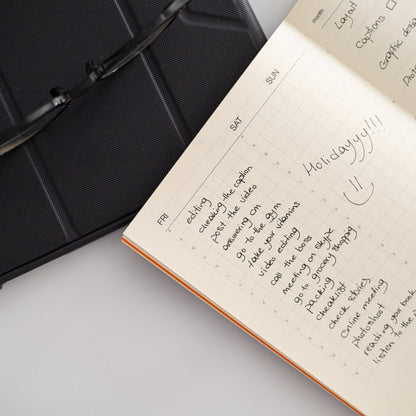 month
Layout
Captions
Graphic
SUN
Holidayyy!!!
SAT
FRI
editing
cheaking the caption
post the video
answering cm
go to the gym
take your vitamins
video editing
call the boss
meeting on skype
go to grocery shopping
packing
cheaklist
check stories
Online meeting
photoshoot
reading your book
listen to the